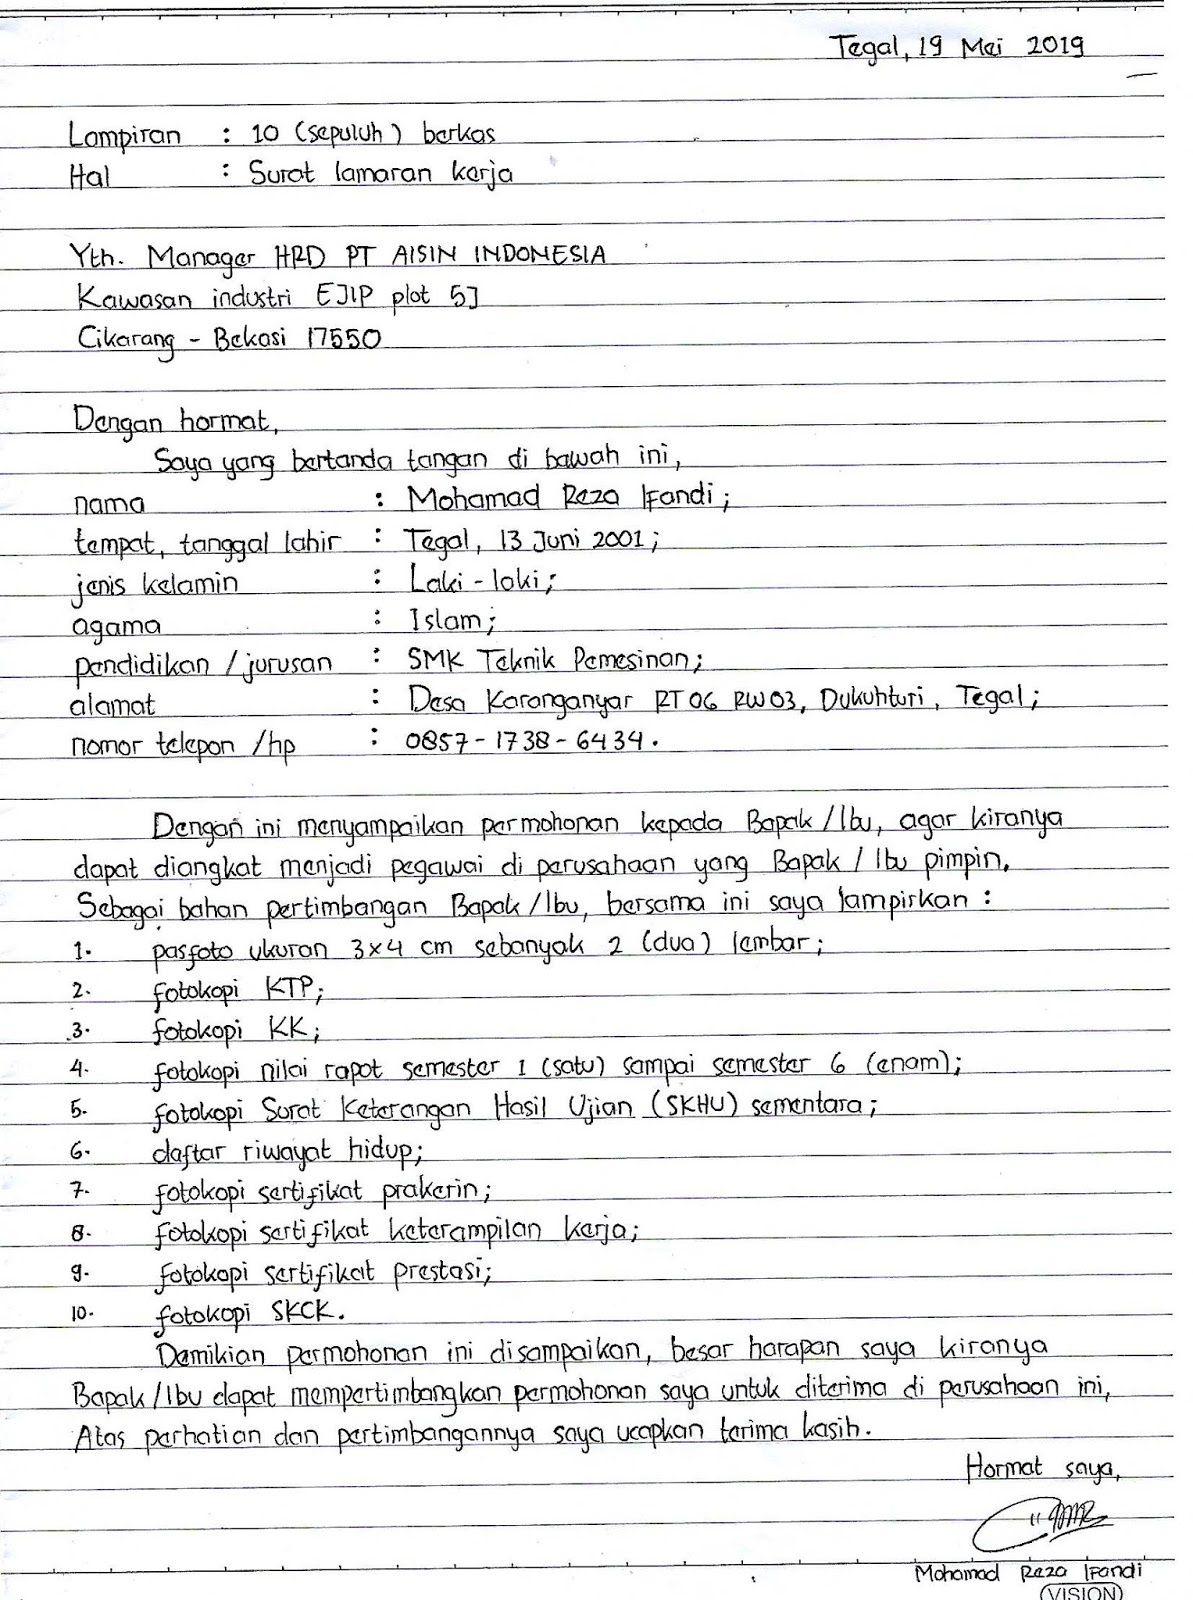 Tegal, 19 Mei 2019
Lampiran : 10 (sepuluh) berkas
Hal : Surat lamaran kerja
Yth. Manager HRD PT AISIN INDONESIA
Kawasan industri EJIP plot 5J
Cikarang - Bekasi 17550
Dengan hormat,
Saya yang bertanda tangan di bawah ini,
nama : Mohamad Reza Ifandi;
tempat, tanggal lahir : Tegal, 13 Juni 2001;
jenis kelamin : Laki-laki;
agama : Islam;
pendidikan / jurusan : SMK Teknik Pemesinan;
alamat : Desa Karanganyar RT 06 RW 03, Dukuhturi, Tegal;
nomor telepon /hp : 0857-1738-6434.
Dengan ini menyampaikan permohonan kepada Bapak /Ibu, agar kiranya
dapat diangkat menjadi pegawai di perusahaan yang Bapak / Ibu pimpin.
Sebagai bahan pertimbangan Bapak /Ibu, bersama ini saya lampirkan :
1. pasfoto ukuran 3x4 cm sebanyak 2 (dua) lembar;
2. fotokopi KTP;
3. fotokopi KK;
4. fotokopi nilai rapot semester 1 (satu) sampai semester 6 (enam);
5. fotokopi Surat Keterangan Hasil Ujian (SKHU) sementara;
6. daftar riwayat hidup;
7. fotokopi sertifikat prakerin;
8. fotokopi sertifikat keterampilan kerja;
9. fotokopi sertifikat prestasi;
10. fotokopi SKCK.
Demikian permohonan ini disampaikan, besar harapan saya kiranya
Bapak /Ibu dapat mempertimbangkan permohonan saya untuk diterima di perusahaan ini,
Atas perhatian dan pertimbangannya saya ucapkan terima kasih.
Hormat saya,
Mohamad Reza Ifandi
VISION